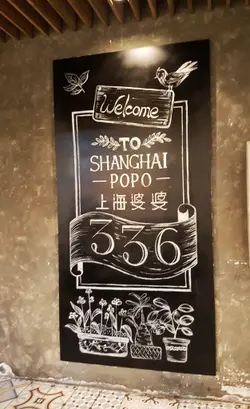 Welcome
TO
SHANGHAI
—POPO—
上海婆婆
336